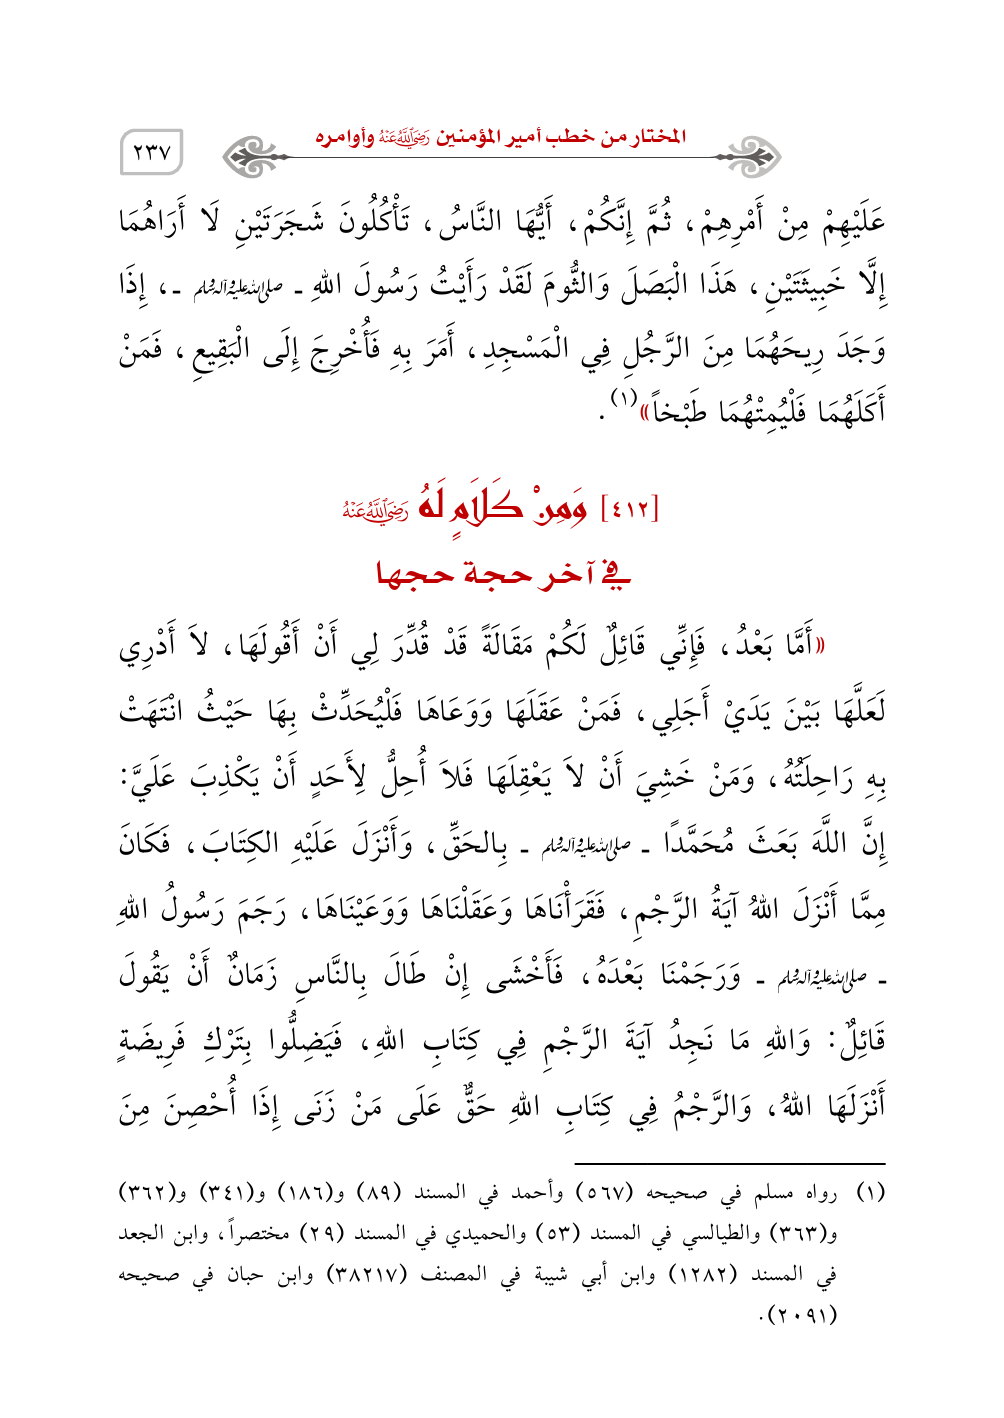 المختار من خطب أمير المؤمنين رَضِيَ اللَّهُ عَنْهُ وأوامره
٢٣٧
عَلَيْهِمْ مِنْ أَمْرِهِمْ، ثُمَّ إِنَّكُمْ، أَيُّهَا النَّاسُ، تَأْكُلُونَ شَجَرَتَيْنِ لَا أَرَاهُمَا
إِلَّا خَبِيثَتَيْنِ، هَذَا الْبَصَلَ وَالثُّومَ لَقَدْ رَأَيْتُ رَسُولَ اللهِ ـ صلى الله عليه وآله وسلم ـ، إِذَا
وَجَدَ رِيحَهُمَا مِنَ الرَّجُلِ فِي الْمَسْجِدِ، أَمَرَ بِهِ فَأُخْرِجَ إِلَى الْبَقِيعِ، فَمَنْ
أَكَلَهُمَا فَلْيُمِتْهُمَا طَبْخاً»(١).
[٤١٢] وَمِنْ كَلَامٍ لَهُ رَضِيَ اللَّهُ عَنْهُ
في آخر حجة حجها
«أَمَّا بَعْدُ، فَإِنِّي قَائِلٌ لَكُمْ مَقَالَةً قَدْ قُدِّرَ لِي أَنْ أَقُولَهَا، لاَ أَدْرِي
لَعَلَّهَا بَيْنَ يَدَيْ أَجَلِي، فَمَنْ عَقَلَهَا وَوَعَاهَا فَلْيُحَدِّثْ بِهَا حَيْثُ انْتَهَتْ
بِهِ رَاحِلَتُهُ، وَمَنْ خَشِيَ أَنْ لاَ يَعْقِلَهَا فَلاَ أُحِلُّ لِأَحَدٍ أَنْ يَكْذِبَ عَلَيَّ:
إِنَّ اللَّهَ بَعَثَ مُحَمَّدًا ـ صلى الله عليه وآله وسلم ـ بِالحَقِّ، وَأَنْزَلَ عَلَيْهِ الكِتَابَ، فَكَانَ
مِمَّا أَنْزَلَ اللهُ آيَةُ الرَّجْمِ، فَقَرَأْنَاهَا وَعَقَلْنَاهَا وَوَعَيْنَاهَا، رَجَمَ رَسُولُ اللهِ
ـ صلى الله عليه وآله وسلم ـ وَرَجَمْنَا بَعْدَهُ، فَأَخْشَى إِنْ طَالَ بِالنَّاسِ زَمَانٌ أَنْ يَقُولَ
قَائِلٌ: وَاللهِ مَا نَجِدُ آيَةَ الرَّجْمِ فِي كِتَابِ اللهِ، فَيَضِلُّوا بِتَرْكِ فَرِيضَةٍ
أَنْزَلَهَا اللهُ، وَالرَّجْمُ فِي كِتَابِ اللهِ حَقٌّ عَلَى مَنْ زَنَى إِذَا أُحْصِنَ مِنَ
(١) رواه مسلم في صحيحه (٥٦٧) وأحمد في المسند (٨٩) و(١٨٦) و(٣٤١) و(٣٦٢)
و(٣٦٣) والطيالسي في المسند (٥٣) والحميدي في المسند (٢٩) مختصراً، وابن الجعد
في المسند (١٢٨٢) وابن أبي شيبة في المصنف (٣٨٢١٧) وابن حبان في صحيحه
(٢٠٩١).